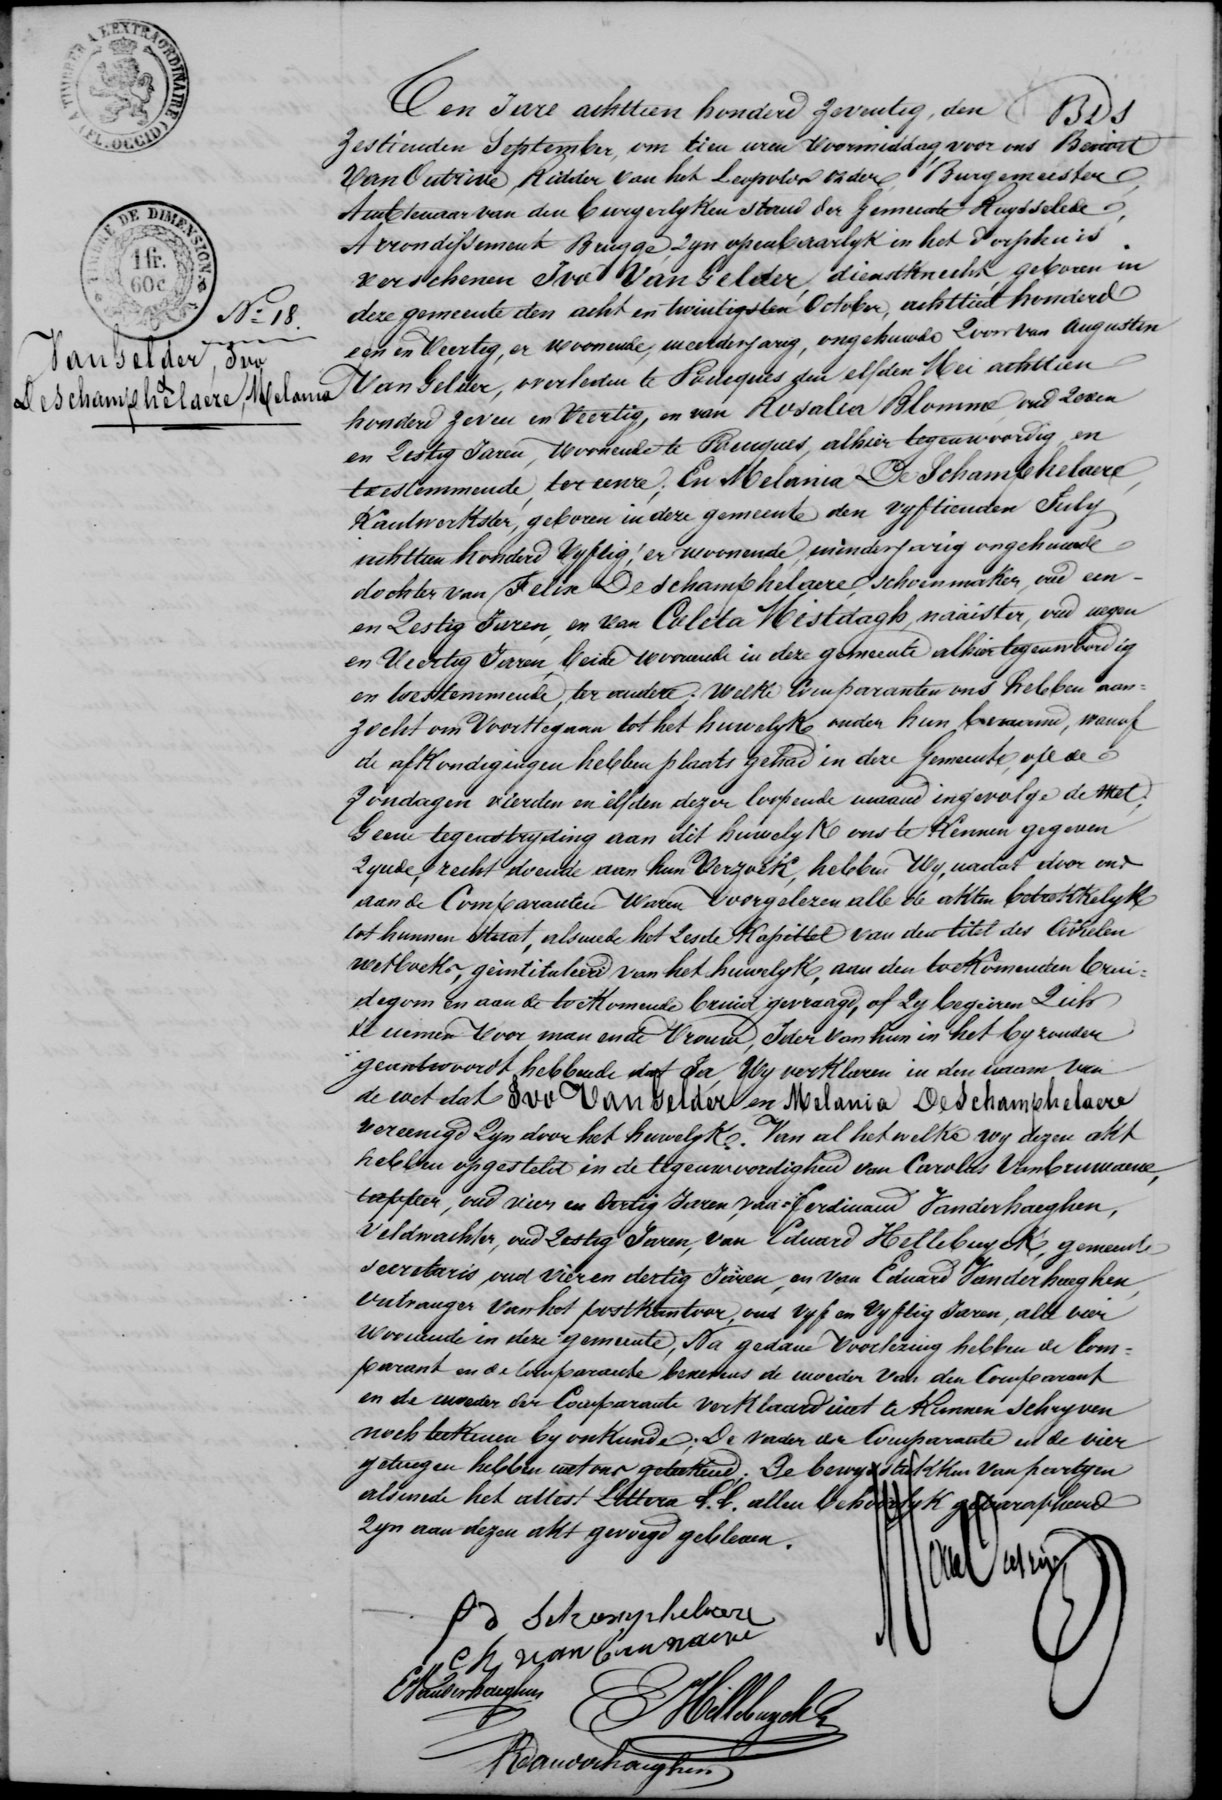 TIMBRER A L'EXTRAORDINAIRE
(FL. OCCID)
TIMBRE DE DIMENSION
1 fr.
60 c
No 18.
Van Gelder, Ivo
&
De Schamphelaere, Melania
Ten Jare achttien honderd zeventig, den
zestienden September, om tien uren voormiddag, voor ons Benoit
Van Outrive, Ridder van het Leopolds order, Burgemeester,
Ambtenaar van den burgerlyken stand der gemeente Ruysselede,
Arrondissement Brugge, zyn openbaarlyk in het dorphuis
verschenen Ivo Van Gelder, dienstknecht, geboren in
deze gemeente den acht en twintigsten October, achttien honderd
een en veertig, er woonende, meerderjarig, ongehuwde zoon van Augusten
Van Gelder, overleden te Poucques den elfden Mei achttien
honderd zeven en veertig, en van Rosalia Blomme, oud zeven
en zestig Jaren, woonende te Poucques, alhier tegenwoordig en
toestemmende, ter eenre; En Melania De Schamphelaere,
Kantwerkster, geboren in deze gemeente den vyftienden July
achttien honderd vyftig, er woonende, minderjarig ongehuwde
dochter van Felix De Schamphelaere, schoenmaker, oud een-
en zestig Jaren, en van Coleta Mistdagh, naaister, oud negen
en veertig Jaren, beide woonende in deze gemeente alhier tegenwoordig
en toestemmende, ter andere. Welke Comparanten ons hebben aan-
zocht om voorttegaan tot het huwelyk onder hun beraamd, wanof
de afkondigingen hebben plaats gehad in deze Gemeente, op de
zondagen vierden en elfden dezer loopende maand ingevolge de wet,
Geene tegenstryding aan dit huwelyk ons te kennen gegeven
zynde, recht doende aan hun verzoek, hebben Wy, nadat door ons
aan de Comparanten waren voorgelezen alle de akten betrekkelyk
tot hunnen staat, alsmede het zesde Kapittel van den titel des Civielen
wetboeks, geintituleerd van het huwelyk, aan den toekomenden brui-
degom en aan de toekomende bruid gevraagd, of zy begeeren zich
te nemen voor man ende vrouw, Ider van hun in het byzonder
geantwoordt hebbende dat Ja, Wy verklaren in den naam van
de wet dat Ivo Van Gelder en Melania De Schamphelaere
vereenigd zyn door het huwelyk. Van al het welke wy dezen akt
hebben opgesteld in de tegenwoordigheid van Carolus Vanbruwaene,
tapper, oud vier en dertig Jaren, van Ferdinand Vanderhaeghen,
Veldwachter, oud zestig Jaren, van Eduard Hellebuyck, gemeente
secretaris, oud vier en dertig Jaren, en van Eduard Vanderhaeghen,
ontvanger van het postkantoor, oud vyf en vyftig Jaren, alle vier
woonende in deze gemeente, Na gedane voorlezing hebben de Com-
parant en de Comparante benevens de moeder van den Comparant
en de moeder der Comparante verklaard niet te Kunnen schryven
noch teekenen by onkunde; De vader der Comparante en de vier
getuigen hebben met ons geteekend; De bewysstukken van partyen
alsmede het attest Littera S.C. allen behoorlyk geparapheerd
zyn aan dezen akt gevoegd gebleven.
Ch van bruwaene
E Vanderhaeghen
E Hellebuyck
Vanderhaeghen